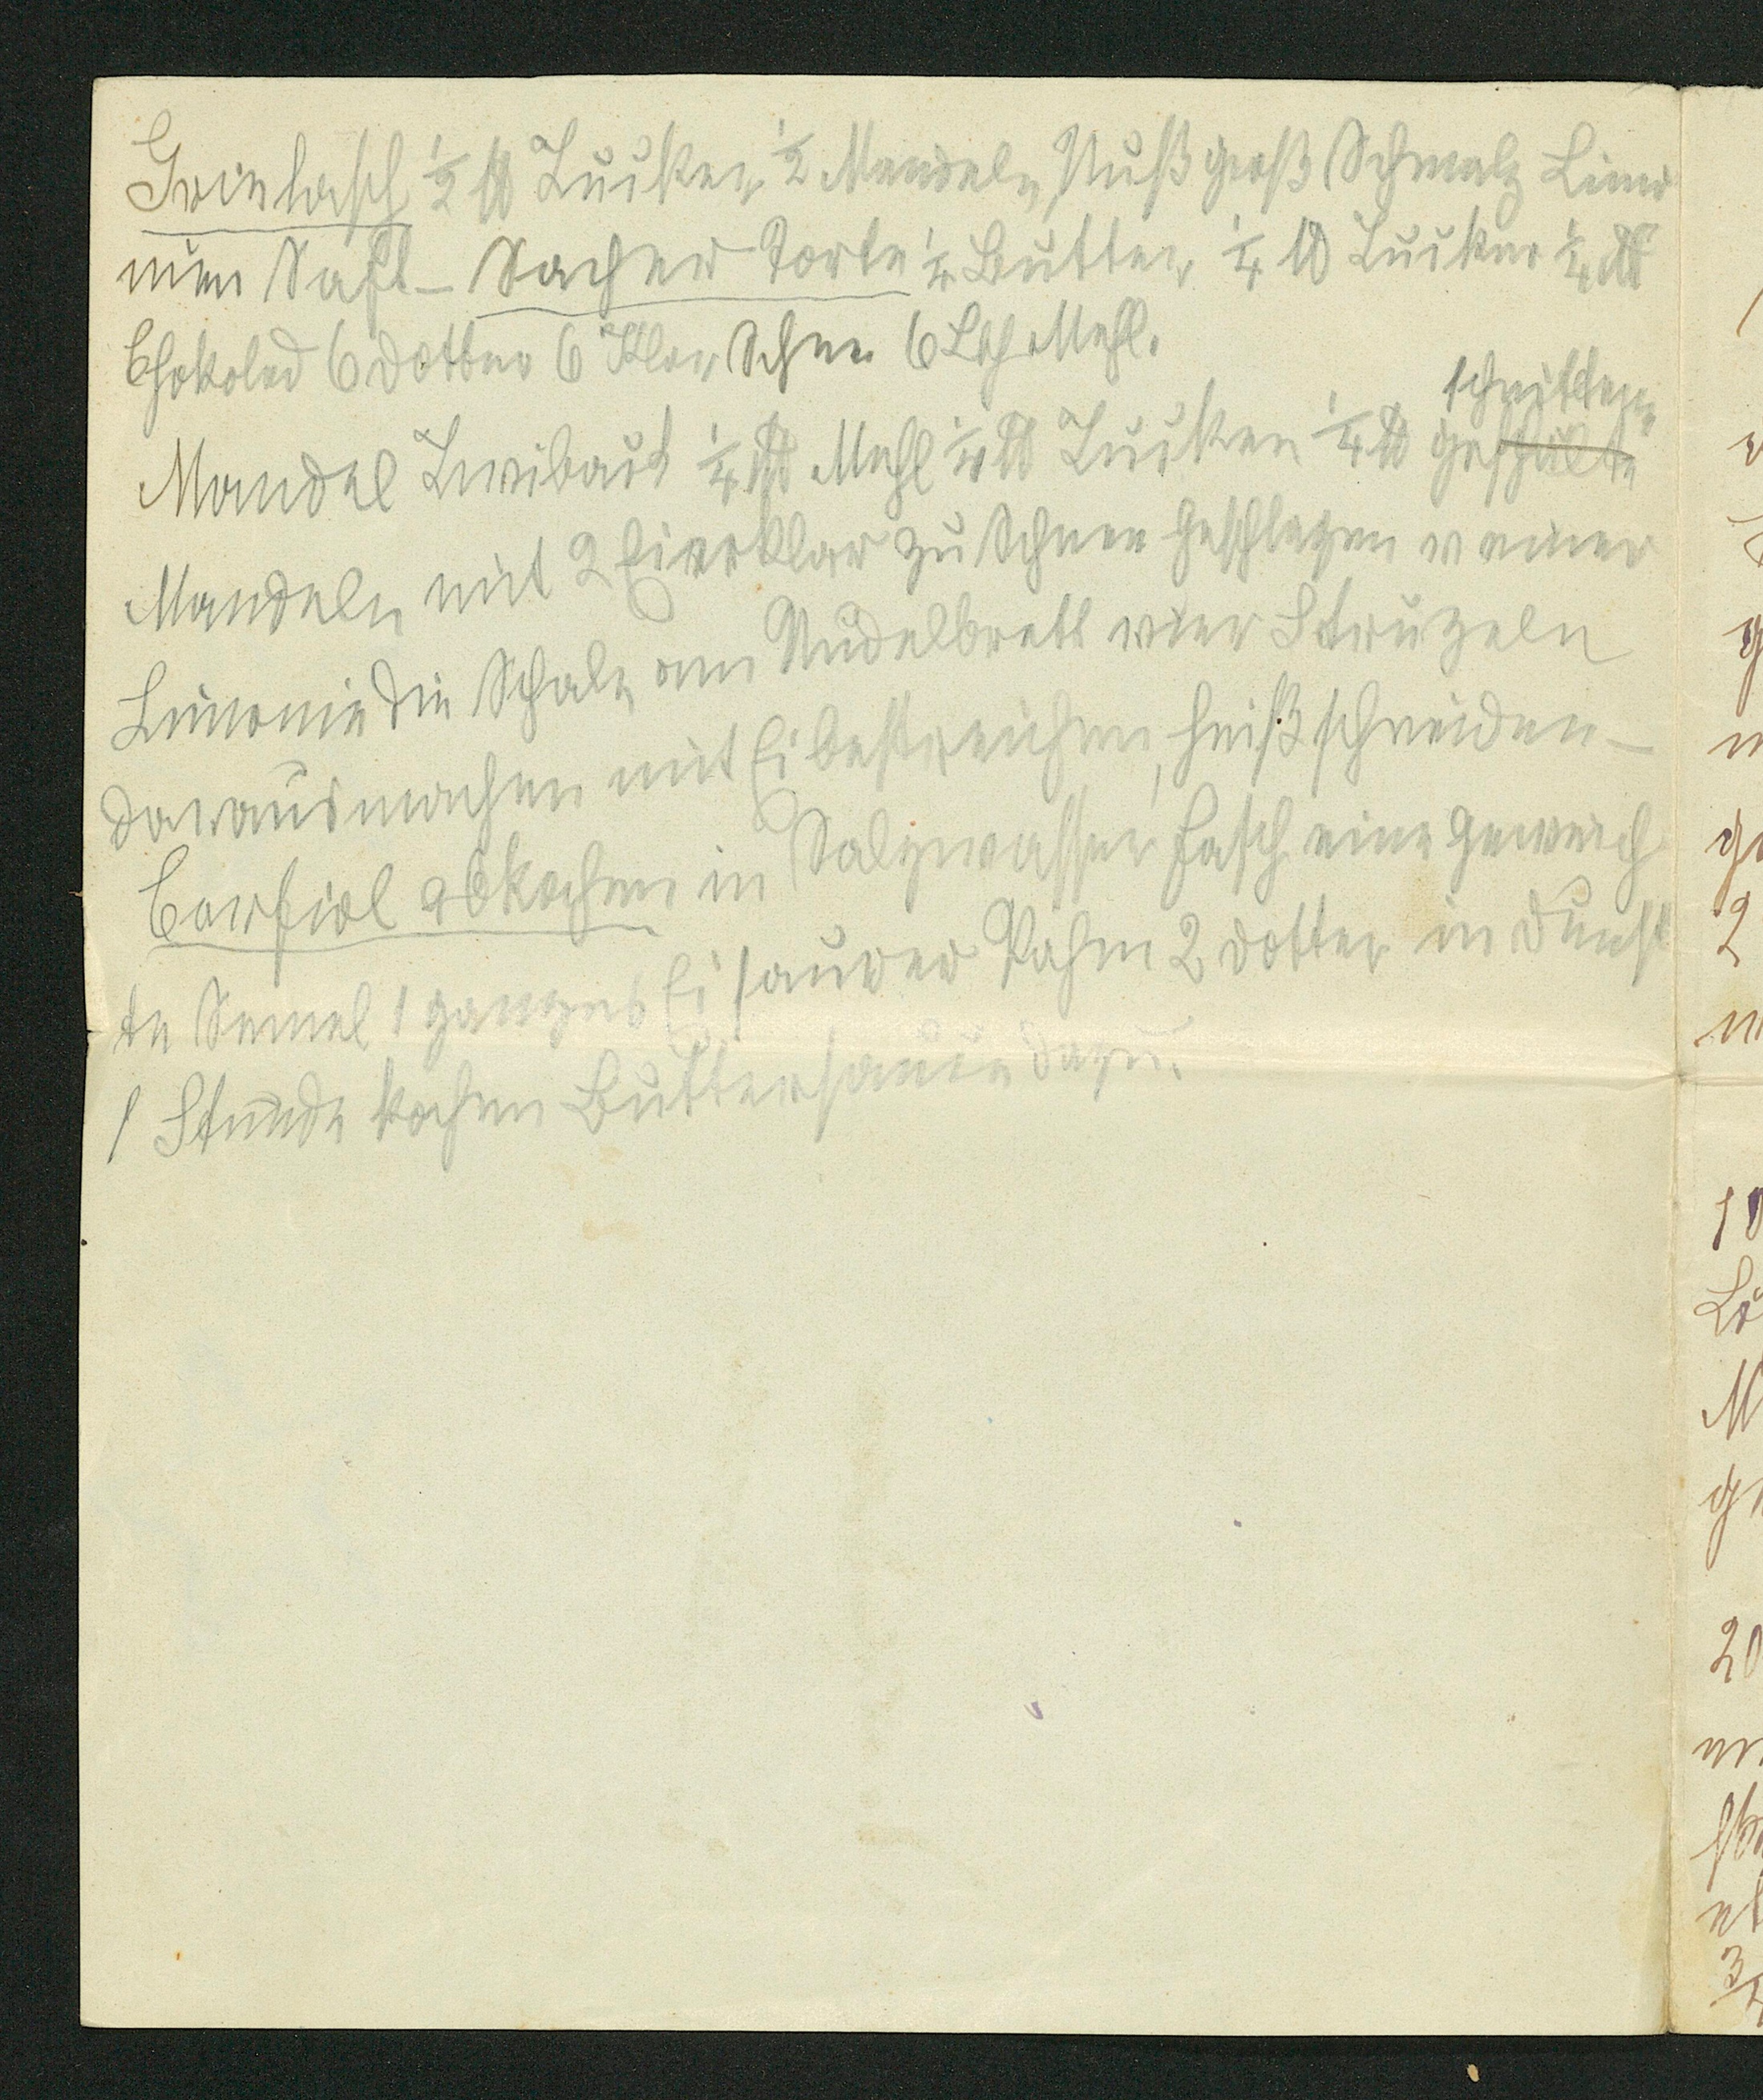 Grielasch ½ ℔ Zucker ½ Mandeln, Nuß groß Schmalz Limo
nien Saft – Sacher Torte ¼ Butter, ¼ ℔ Zucker ¼ ℔
Chokolad 6 Dotter 6 Klar Schnee 6 Lth Mehl.
schnittene
Mandel Zwiback ¼ ℔ Mehl ¼ ℔ Zucker ¼ ℔ geschälte
Mandeln mit 2 Eierklar zu Schnee geschlagen v einer
Limonie die Schale am Nudelbrett vier Struzeln
daraus machen mit Ei bestreichen, heiß schneiden –
Carfiol abkochen in Salzwasser, fasch eine geweich
te Semel 1 ganzes Ei saurer Rahm 2 Dotter in Dunst
1 Stunde kochen Buttersauce dazu.